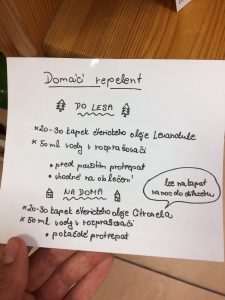 Domácí repelent
DO LESA
*20-30 kapek éterického oleje Levandule
*50 ml vody v rozprašovači
• před použitím protrepat
• vhodné na oblečení
NA DOMA
*20-30 kapek éterického oleje Citronela
*50 ml vody v rozprašovači
• pokaždé protrepat
lze nakapat
na noc do difuzéru